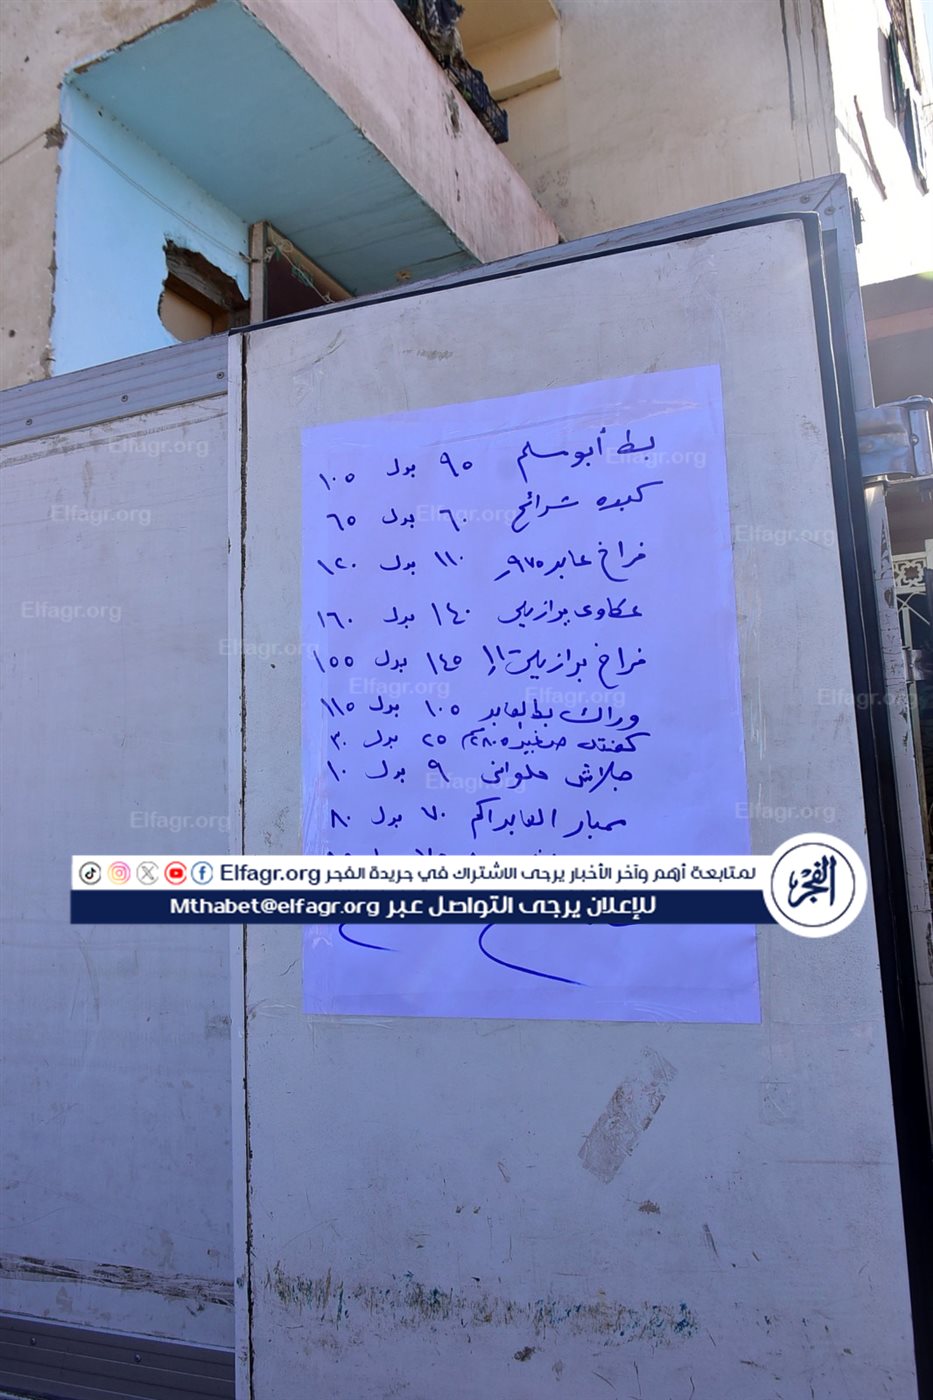 بط أبو سلم ٩٥ بدل ١٠٥
كبده شرائح ٦٠ بدل ٦٥
فراخ عابد ٩٧٥ ١١٠ بدل ١٢٠
عكاوى برازيلى ١٤٠ بدل ١٦٠
فراخ برازيلى ١٤٥ بدل ١٥٥
وراك بط العابد ١٠٥ بدل ١١٥
كفته صغيره ٢٨٠ جم ٢٥ بدل ٣٠
جلاش حلوانى ٩ بدل ١٠
ممبار العابد اكم ٧٠ بدل ٨٠
لمتابعة أهم وآخر الأخبار يرجى الاشتراك في جريدة الفجر Elfagr.org
للإعلان يرجى التواصل عبر Mthabet@elfagr.org
الفجر